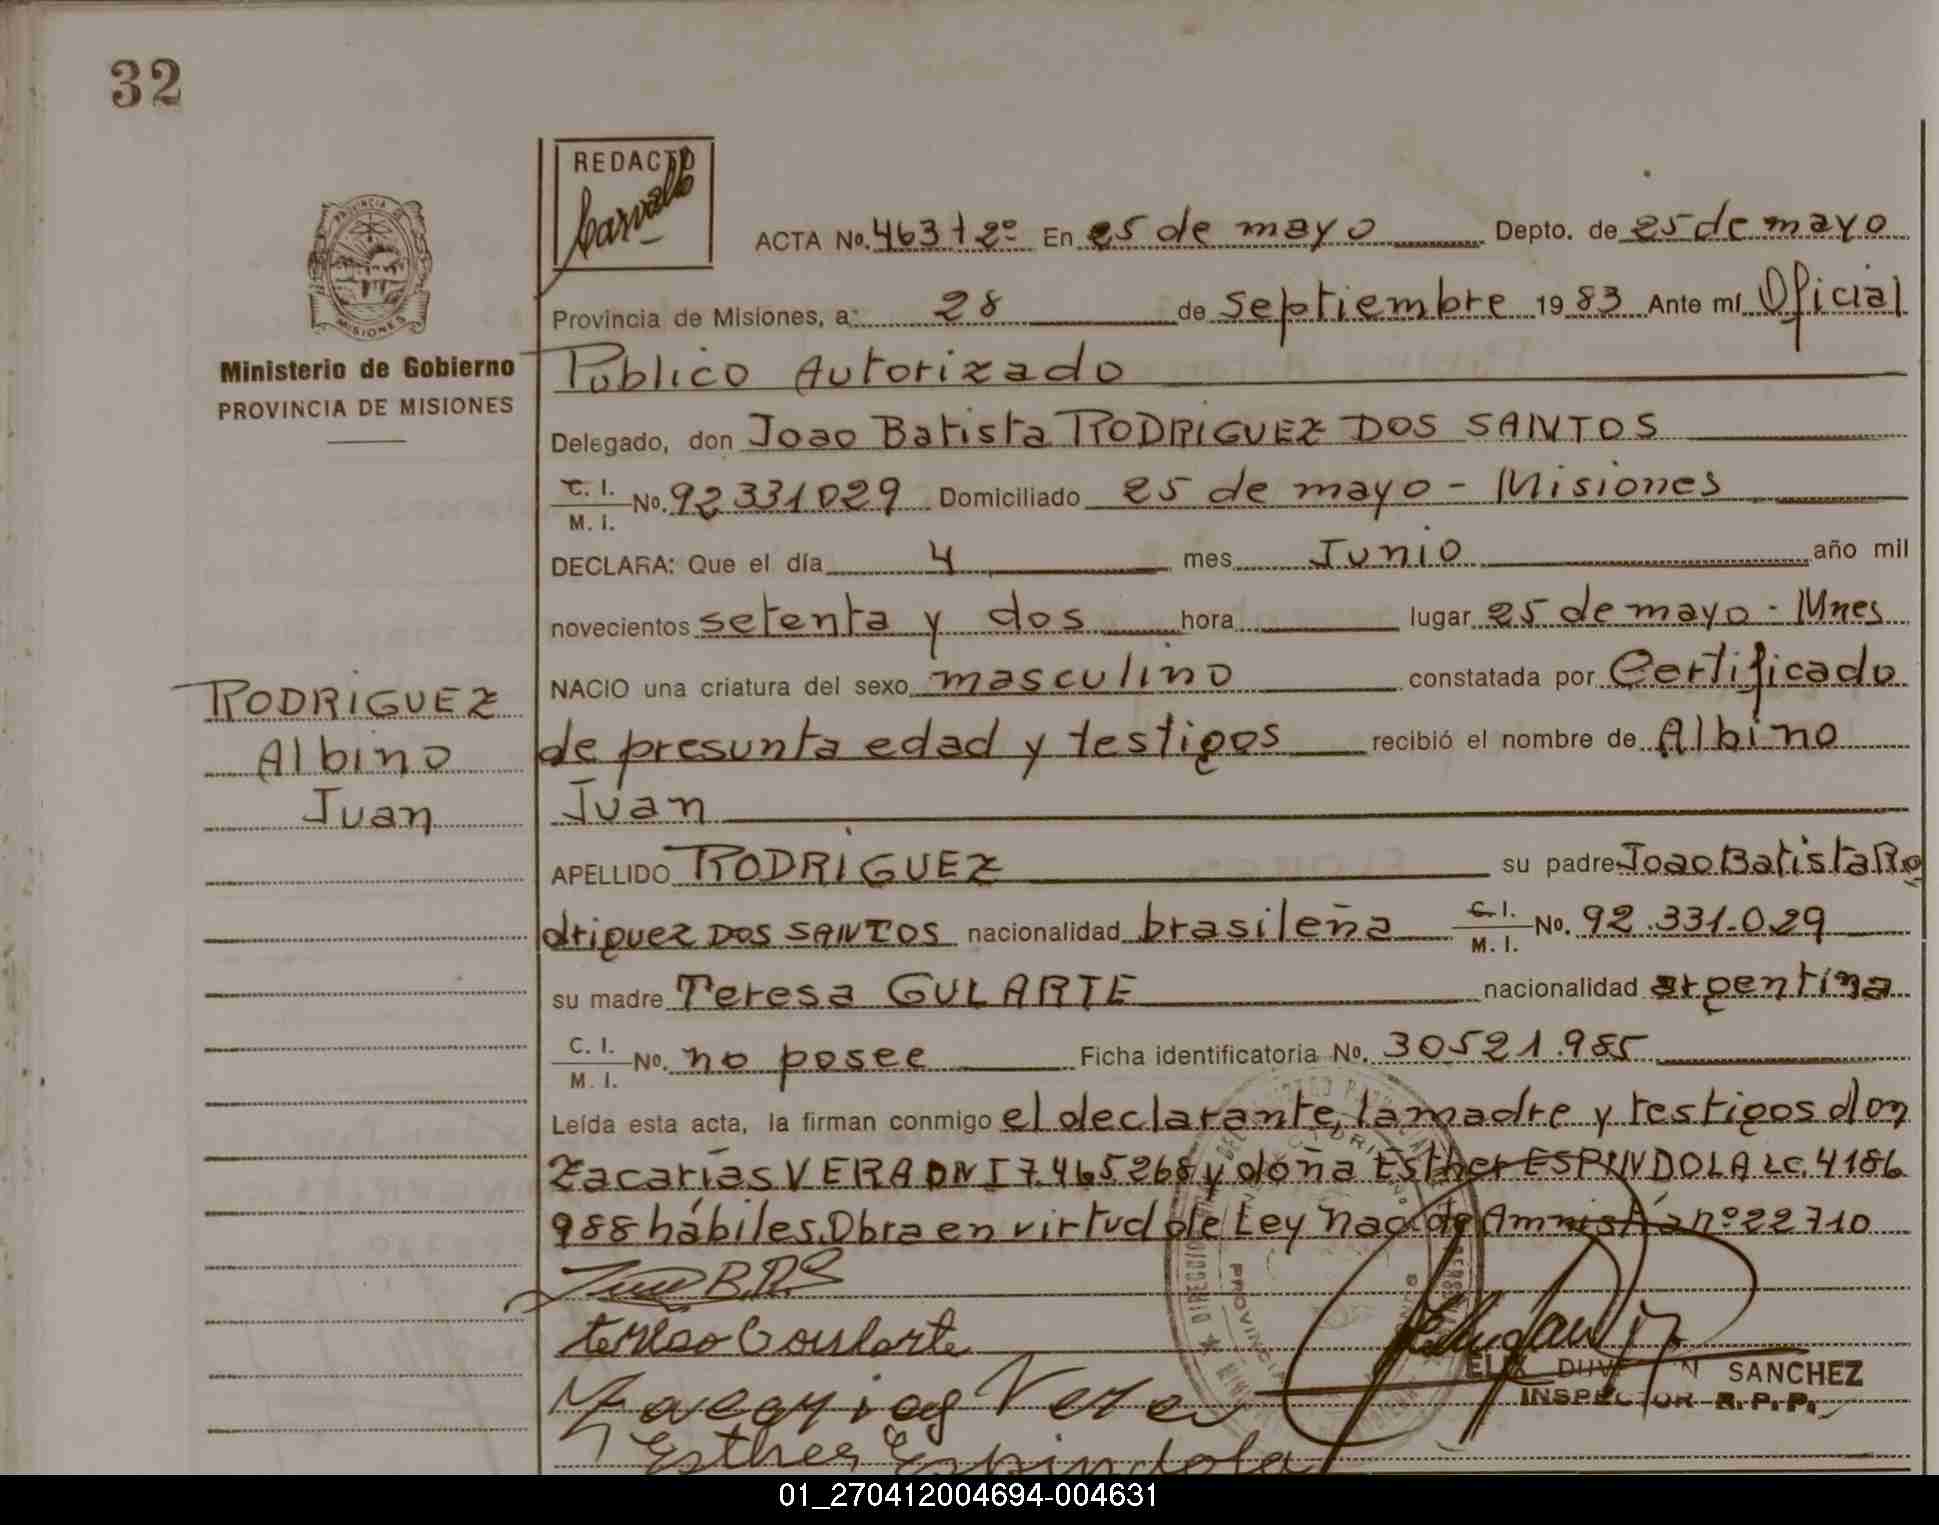 32
REDACTO
Carvallo
PROVINCIA DE
MISIONES
Ministerio de Gobierno
PROVINCIA DE MISIONES
ACTA No. 463 t 2º En 25 de mayo Depto. de 25 de mayo
Provincia de Misiones, a: 28 de Septiembre 1983 Ante mí Oficial
Público Autorizado
Delegado, don Joao Batista RODRIGUEZ DOS SANTOS
C. I.
M. I. No. 92331029 Domiciliado 25 de mayo - Misiones
DECLARA: Que el día 4 mes Junio año mil
novecientos setenta y dos hora lugar 25 de mayo - Mnes
NACIO una criatura del sexo masculino constatada por Certificado
de presunta edad y testigos recibió el nombre de Albino
Juan
RODRIGUEZ
Albino
Juan
APELLIDO RODRIGUEZ su padre Joao Batista Ro
driguez DOS SANTOS nacionalidad brasileña C. I.
M. I. No. 92.331.029
su madre Teresa GULARTE nacionalidad argentina
C. I.
M. I. No. no posee Ficha identificatoria No. 30521.985
Leída esta acta, la firman conmigo el declarante, la madre y testigos don
Zacarías VERA DNI 7.465268 y doña Esther ESPINDOLA LC. 4186
988 hábiles. Obra en virtud de Ley Nac. de Amnistía nº 22710
teresa Goularte
Zacarias Vera
Esther Espindola
SANCHEZ
INSPECTOR R. P. P.
01_270412004694-004631